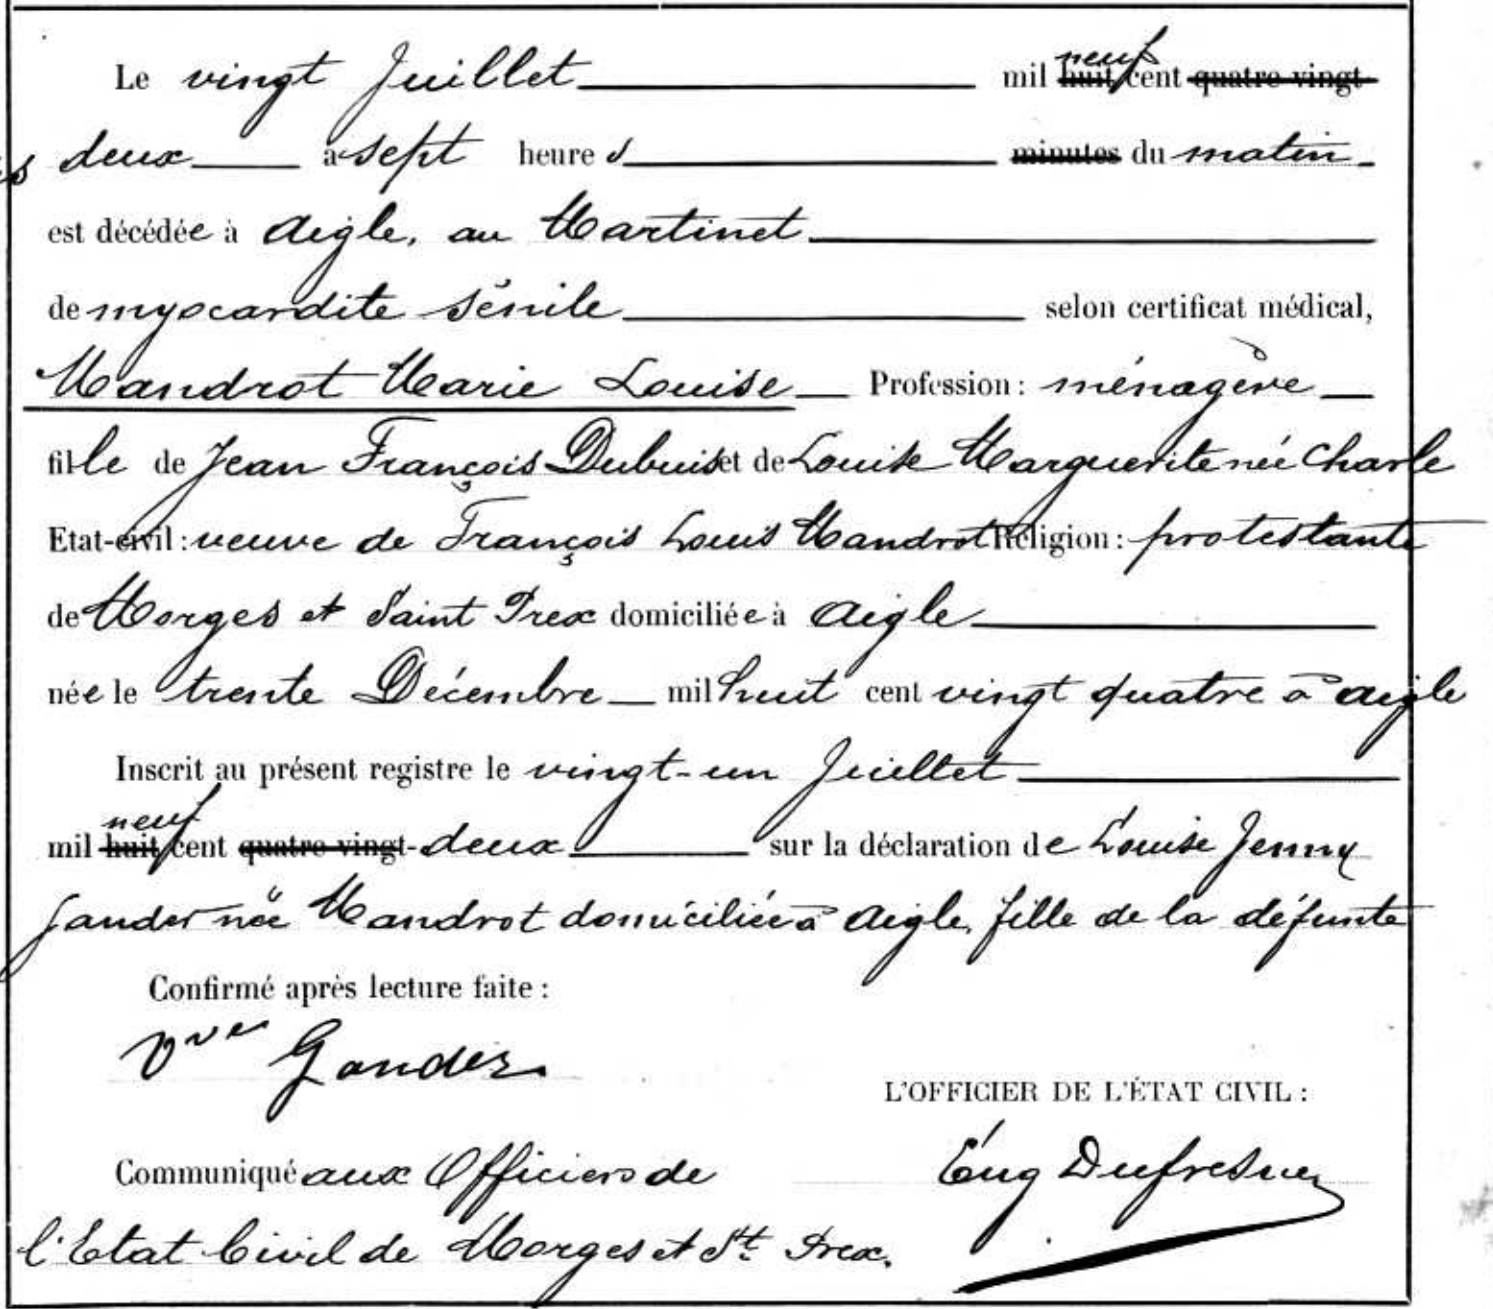 Le vingt Juillet mil huit neuf cent quatre vingt
deux à sept heures minutes du matin
est décédée à Aigle, au Martinet
de myocardite sénile selon certificat médical,
Mandrot Marie Louise Profession : ménagère
fille de Jean François Dubuis et de Louise Marguerite née Charle
Etat-civil : veuve de François Louis Mandrot Religion : protestante
de Morges et Saint Prex domiciliée à Aigle
née le trente Décembre mil huit cent vingt quatre à Aigle
Inscrit au présent registre le vingt-un Juillet
mil huit neuf cent quatre vingt-deux sur la déclaration de Louise Jenny
Gander née Mandrot domiciliée à Aigle, fille de la défunte
Confirmé après lecture faite :
Vve Gander
L'OFFICIER DE L'ÉTAT CIVIL :
Communiqué aux Officiers de Eug Dufresne
l'Etat Civil de Morges et St. Prex.